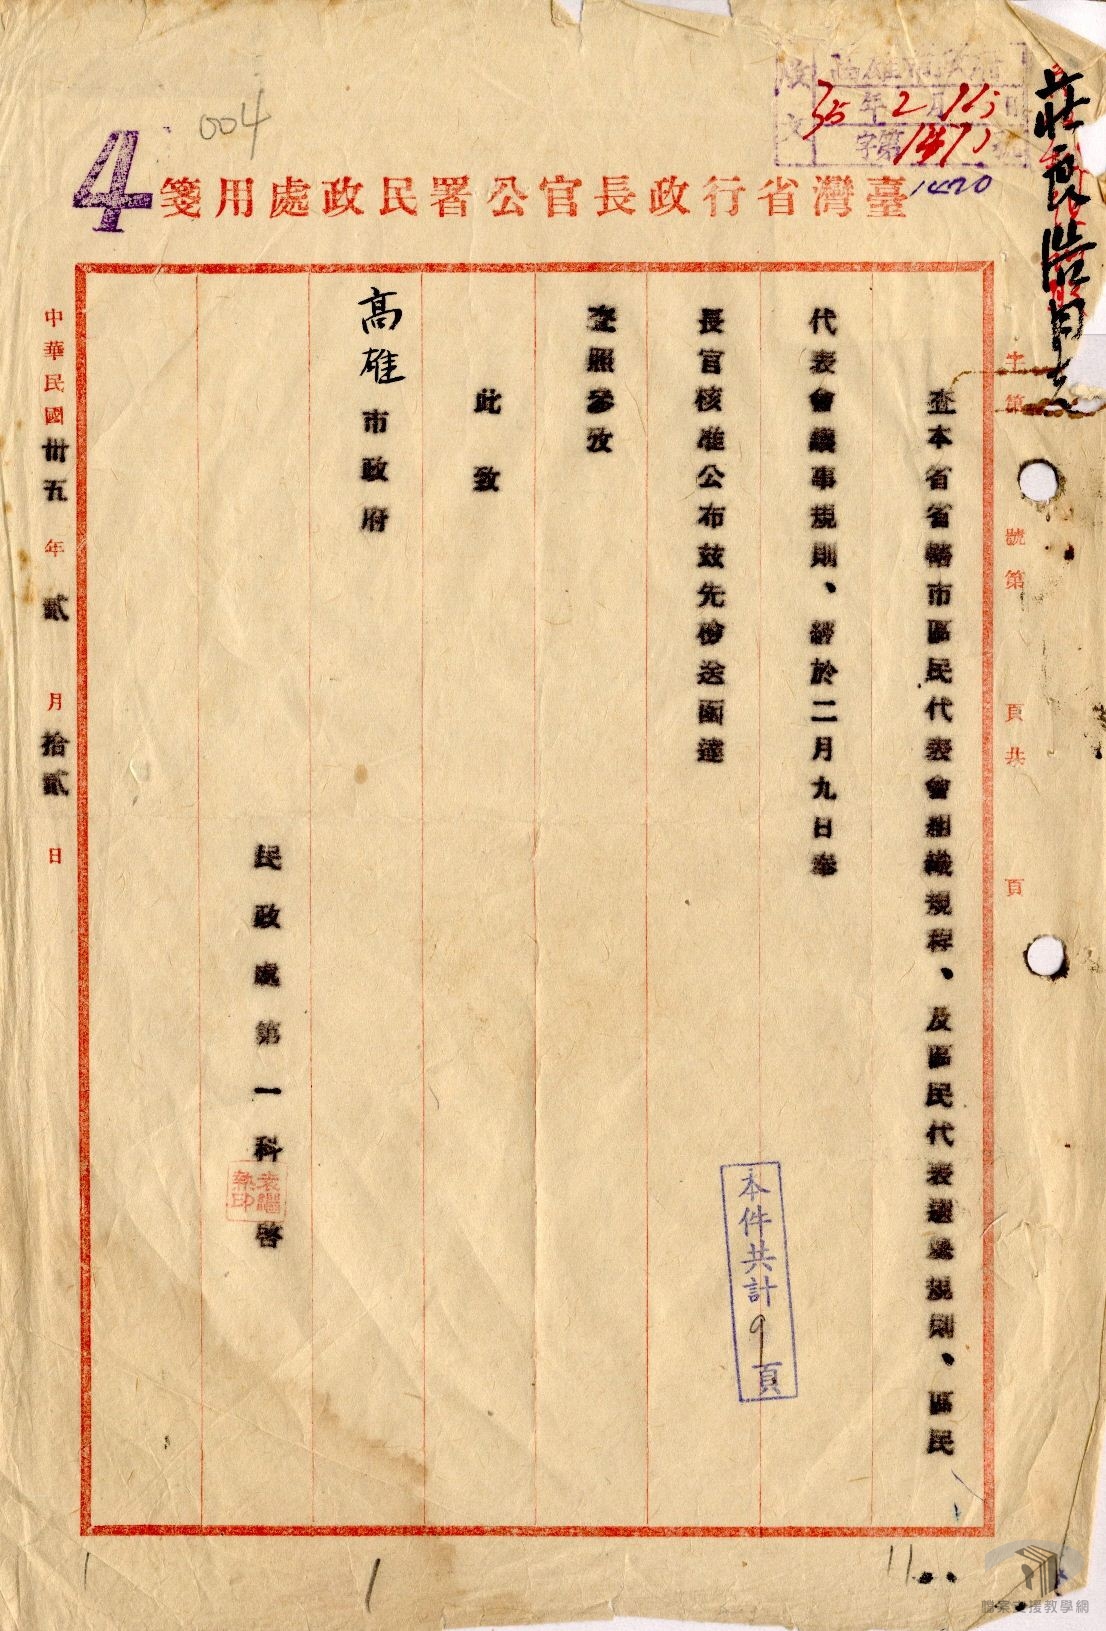 004
4
臺灣省行政長官公署民政處用箋
高雄市政府
收文
35年2月15日
字第1470號
1470
字第
號第
頁共
頁
查本省省轄市區民代表會組織規程、及區民代表選舉規則、區民
代表會議事規則、經於二月九日奉
長官核准公布茲先檢送函達
查照參攷
此致
高雄市政府
民政處第一科啓
袁繼熱印
本件共計9頁
中華民國卅五年貳月拾貳日
1
1
11
檔案支援教學網